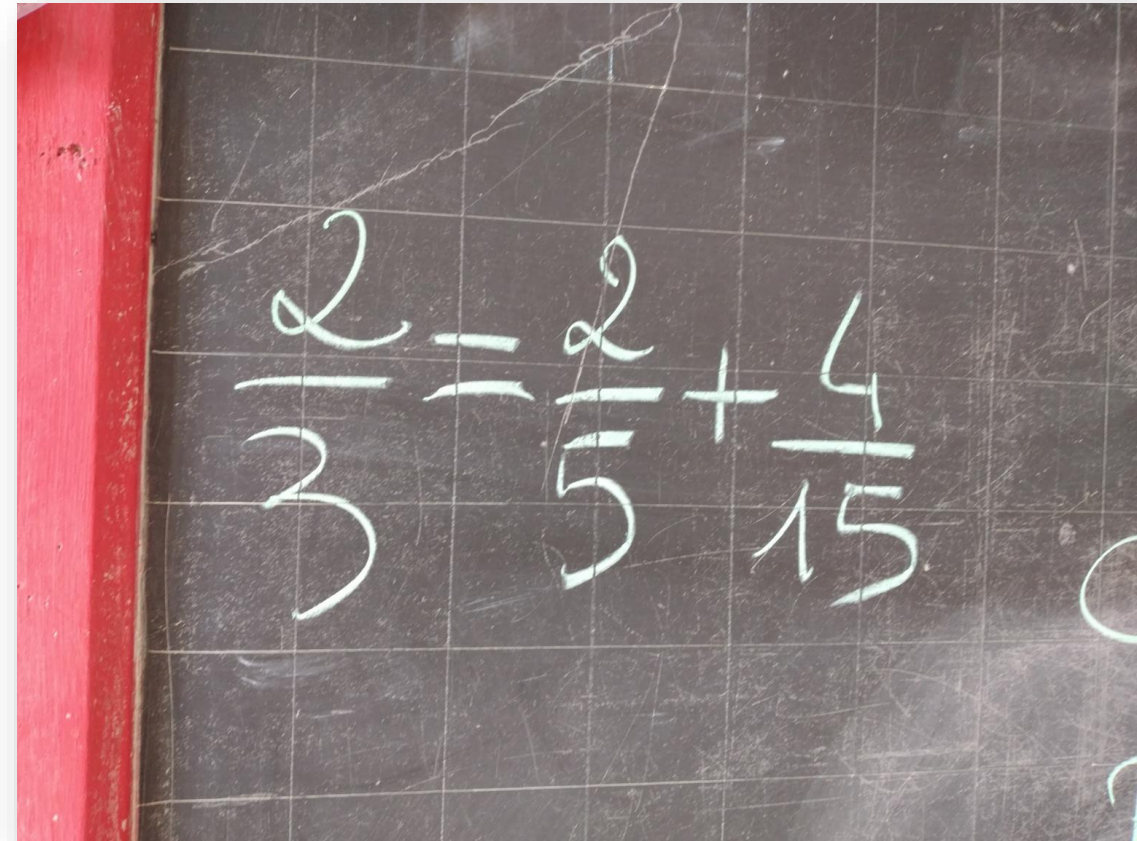 2/3 = 2/5 + 4/15